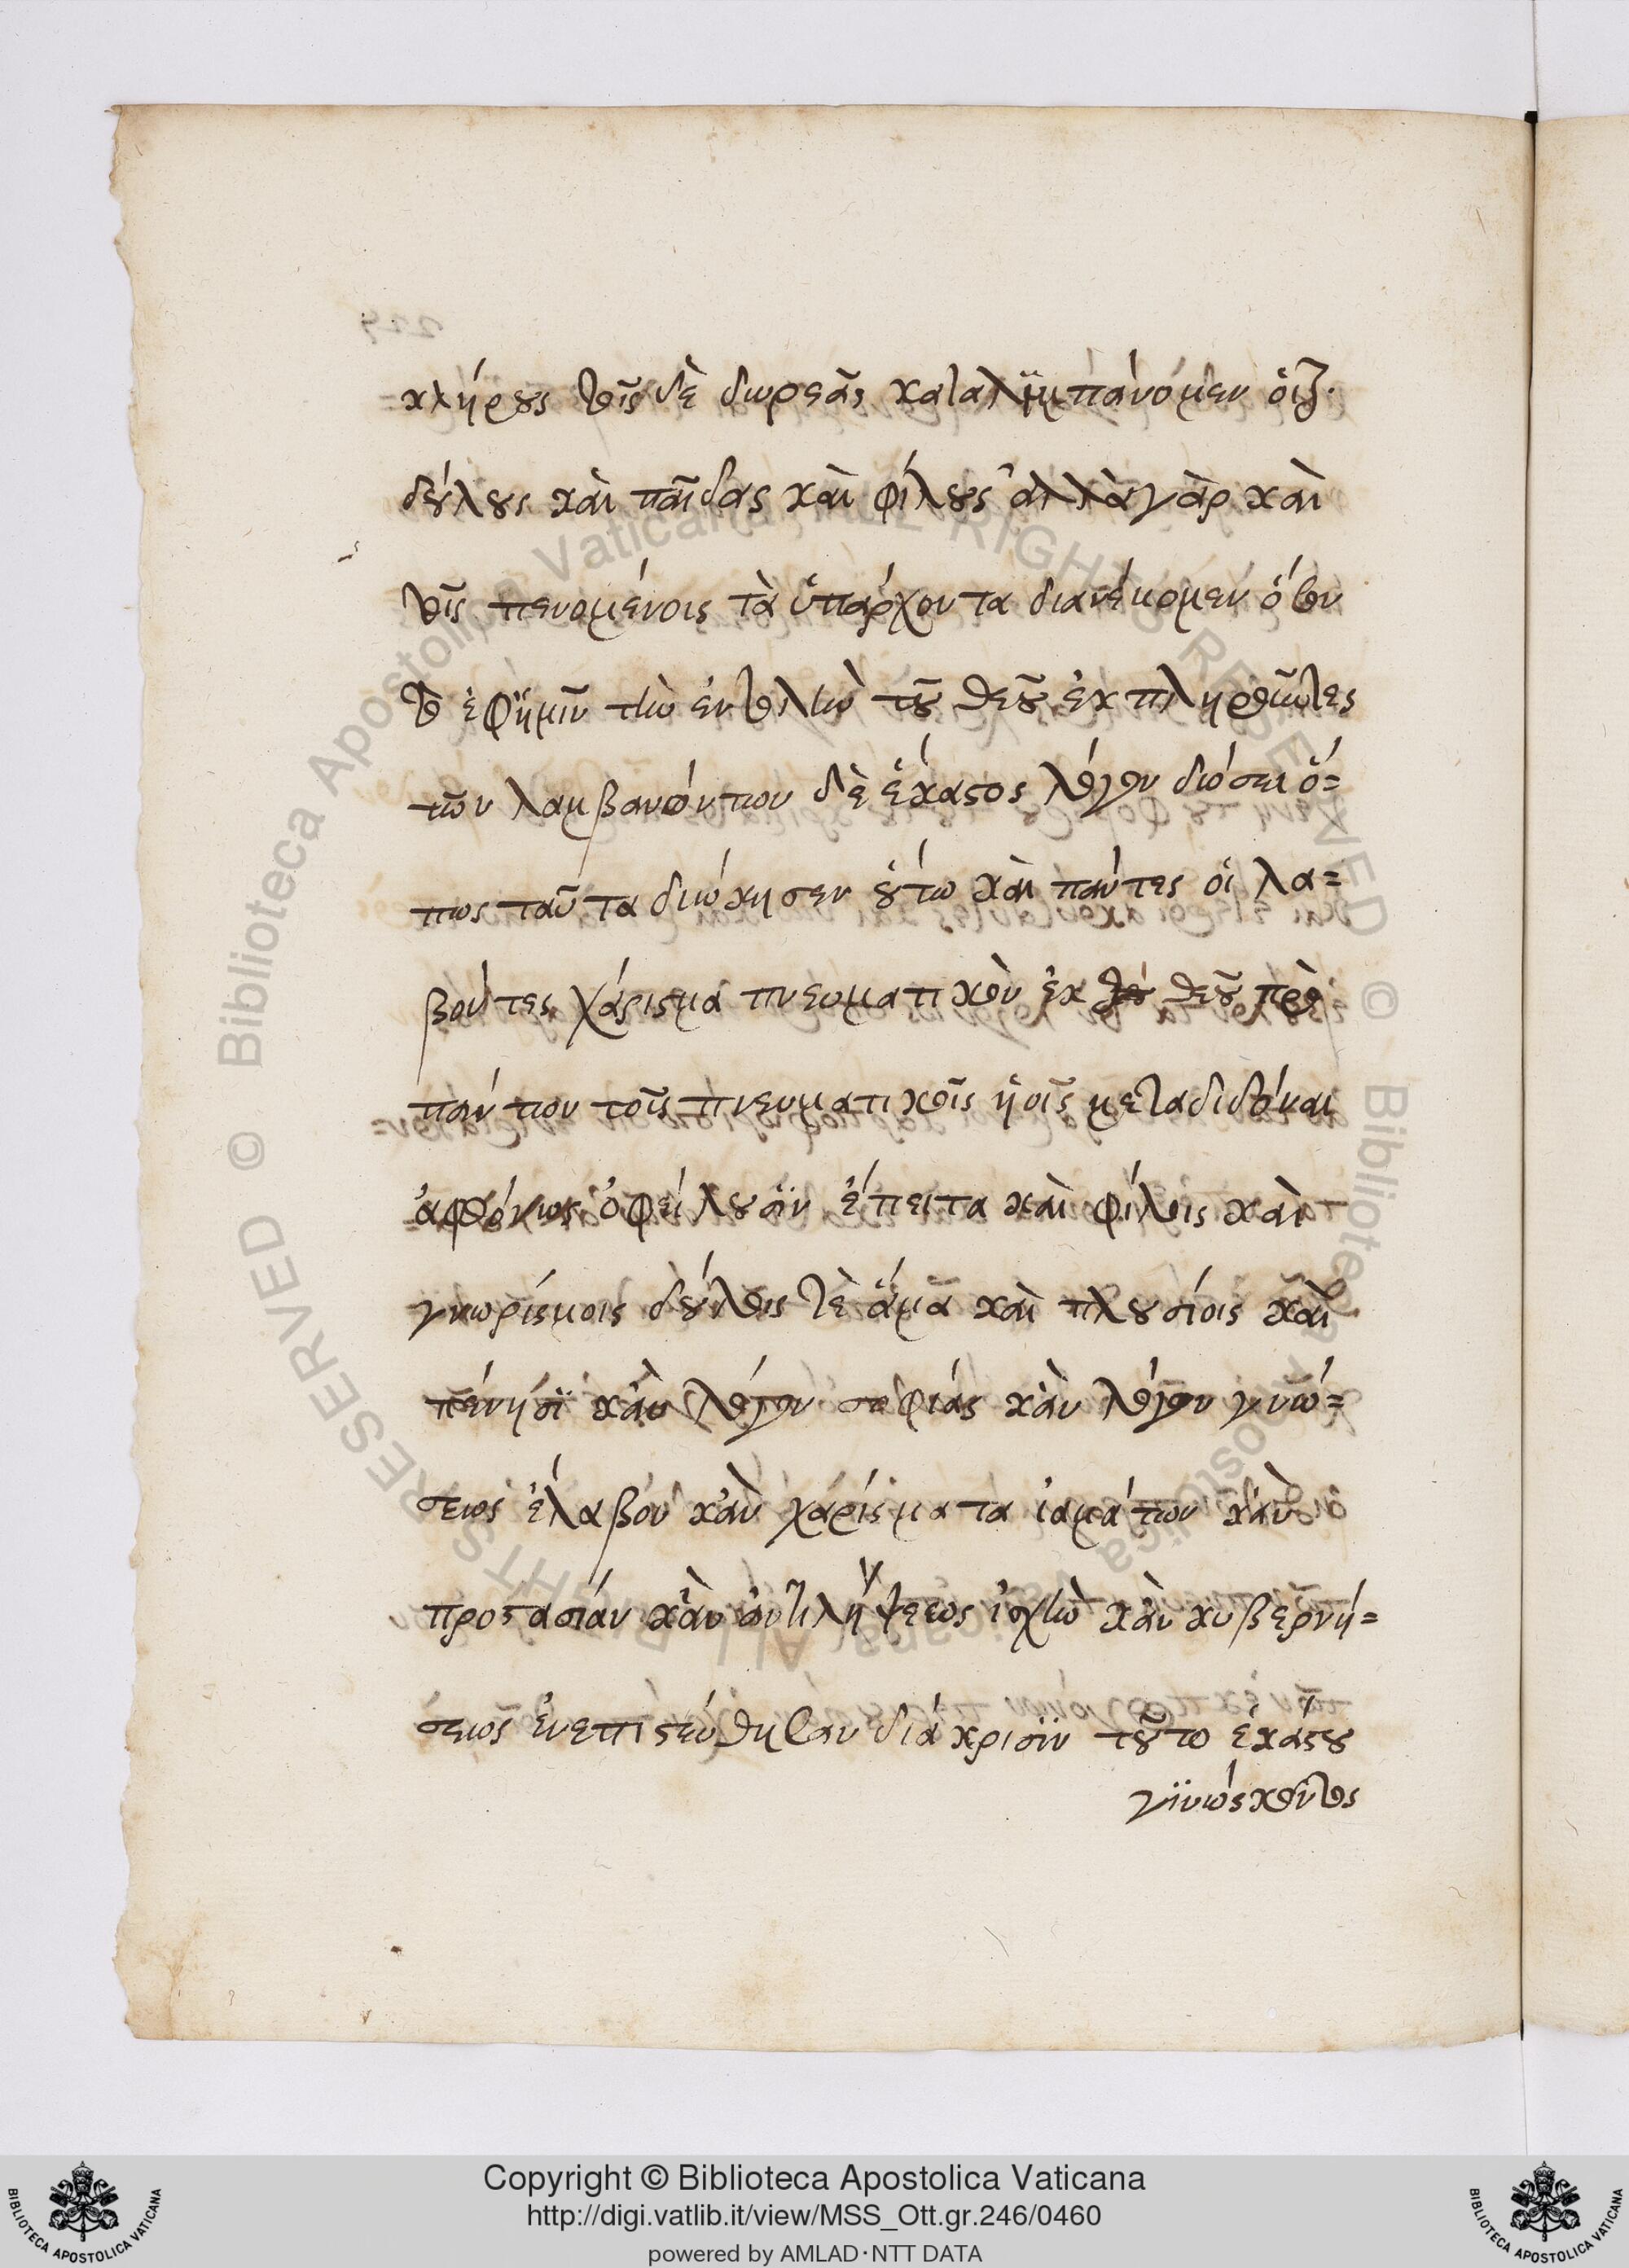 κλήρους τοῖς δὲ δωρεᾶς καταλιμπάνομεν
δούλους καὶ παῖδας καὶ φίλους ἀλλὰ γὰρ καὶ
τοῖς πενομένοις τὰ ὑπάρχοντα διανέμομεν ὅσον
τὸ ἐφ ἡμῖν τὴν ἐντολὴν τοῦ θεοῦ ἐκπληροῦντες
τῶν λαμβανόντων δὲ ἕκαστος λόγον δώσει ὅ=
πως ταῦτα διώκησεν οὕτω καὶ πάντες οἱ λα=
βόντες χάρισμα πνευματικὸν ἐκ θεοῦ πρὸ
πάντων τοῖς πνευματικοῖς ὑιοῖς μεταδιδόναι
ἀφθόνως ὀφείλουσϊν ἔπειτα καὶ φίλοις καὶ
γνωρίσμοις δούλοις τὲ ἅμα καὶ πλουσίοις καὶ
πένησϊ κἂν λόγον σοφίας κἂν λόγον γνώ=
σεως ἔλαβον κἂν χαρίσματα ἰαμάτων κἂν
προστασίαν κἂν ἀντιλήψεως ἰσχὺν κἂν κυβερνή=
σεως ἐνεπιστεύθησαν διάκρισϊν τοῦτο ἑκάστου
γϊνώσκοντος
Copyright © Biblioteca Apostolica Vaticana
http://digi.vatlib.it/view/MSS_Ott.gr.246/0460
powered by AMLAD·NTT DATA
BIBLIOTECA APOSTOLICA VATICANA
BIBLIOTECA APOSTOLICA VATICANA